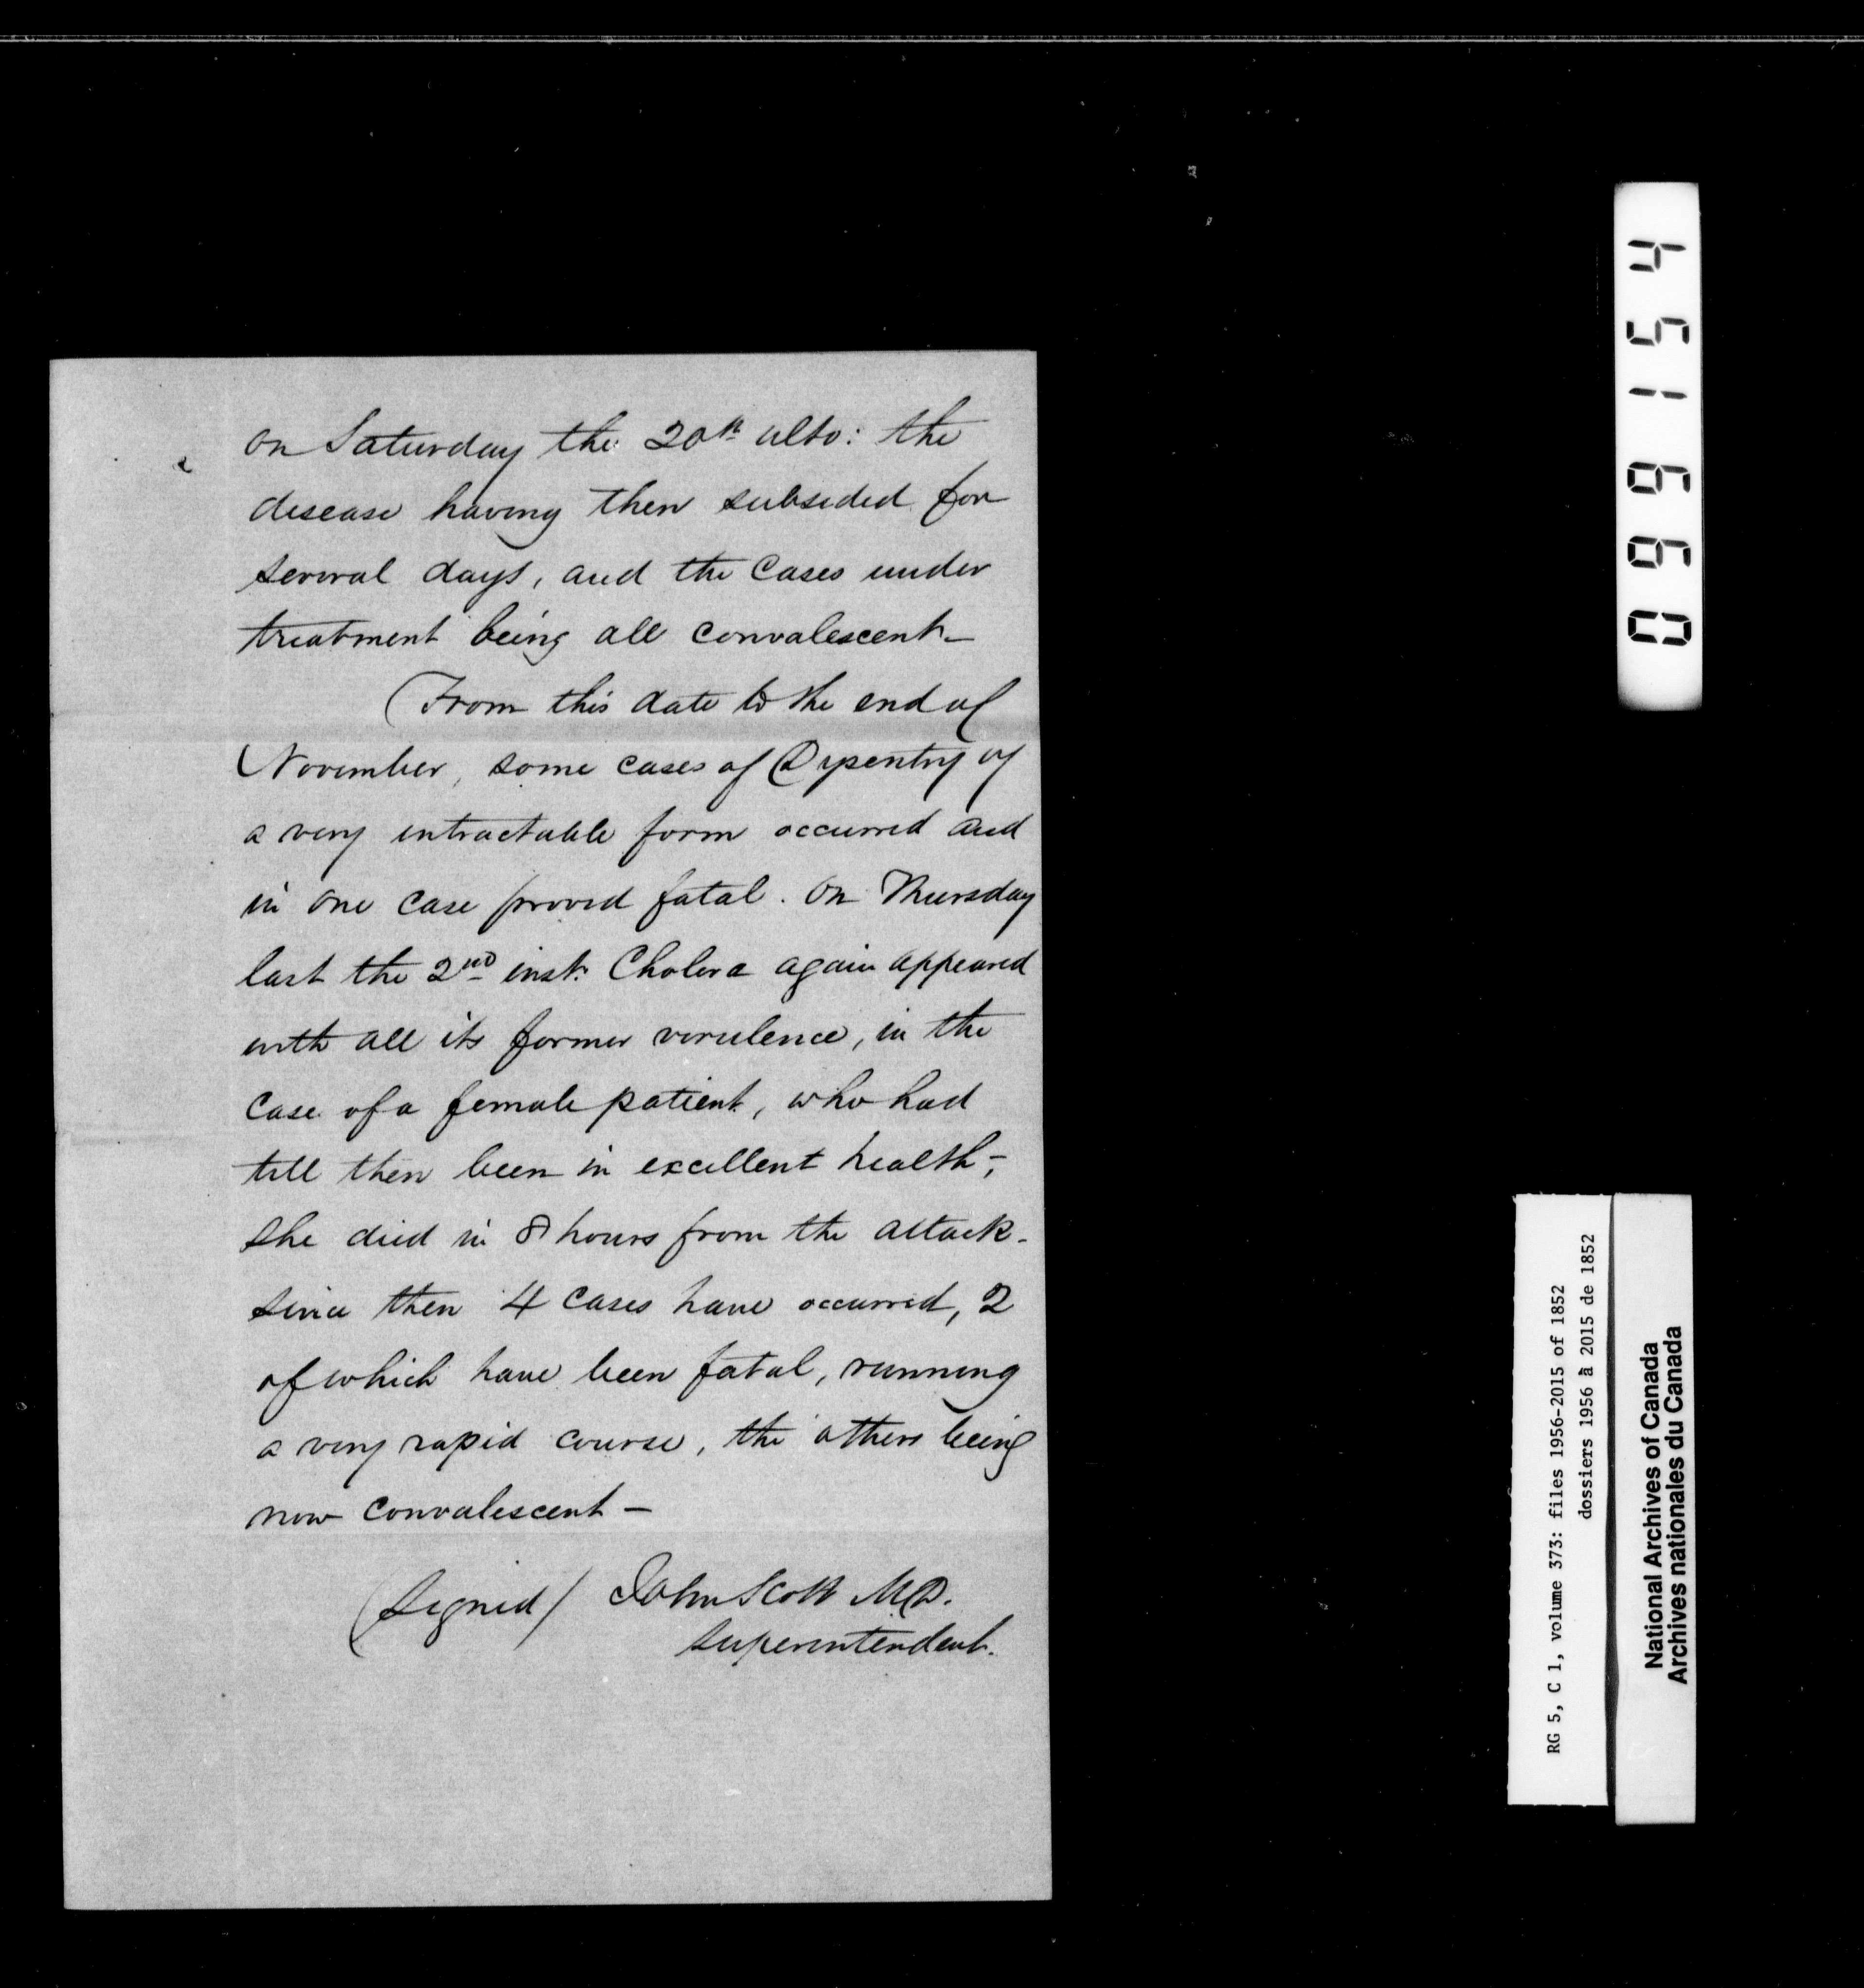 on Saturday the 20th ulto: the
disease having then subsided for
several days, and the cases under
treatment being all convalescent–
From this date to the end of
November, some cases of Dysentry of
a very intractable form occurred and
in one case proved fatal. On Thursday
last the 2nd inst. Cholera again appeared
with all its former virulence, in the
case of a female patient, who had
till then been in excellent health–;
She died in 8 hours from the attack–
since then 4 cases have occurred, 2
of which have been fatal, running
a very rapid course, the others being
now convalescent –
(Signed/ John Scott MD.
Superintendent.
0 6 6 1 5 4
RG 5, C 1, volume 373: files 1956-2015 of 1852
dossiers 1956 à 2015 de 1852
National Archives of Canada
Archives nationales du Canada